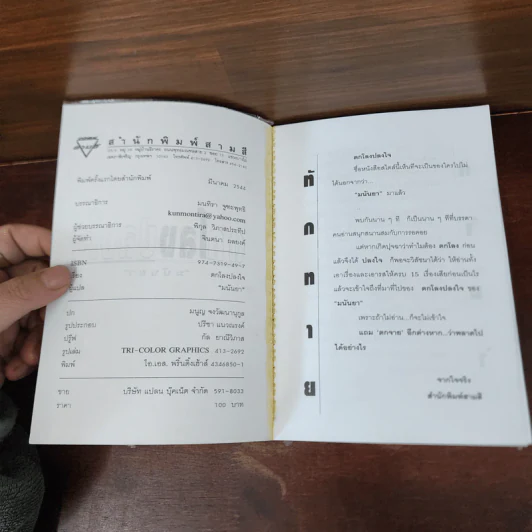 สำนักพิมพ์สามสี
พิมพ์ครั้งแรกโดยสำนักพิมพ์ มีนาคม 2542
บรรณาธิการ มนทิรา จูฑะพุทธิ
kunmontira@yahoo.com
ผู้ช่วยบรรณาธิการ
ผู้จัดทำ จินตนา
ISBN 974-7619-69-7
เรื่อง ตกโลงปลงใจ
"มนันยา"
ปก มนูญ จงวัฒนานุกูล
รูปประกอบ ปรีชา แนวณรงค์
ปรู๊ฟ กัล ยาณีวิภาส
รูปเล่ม TRI-COLOR GRAPHICS 413-2692
พิมพ์ โอ.เอส. พริ้นติ้งเฮ้าส์ 4346850-1
ขาย บริษัท แปลน บุ๊คเน็ต จำกัด 591-8022
ราคา 100 บาท
ทักทาย
ตกโลงปลงใจ
ชื่อหนังสือสไตล์นี้เห็นทีจะเป็นของใครไปไม่
ได้นอกจากว่า...
"มนันยา" มาแล้ว
พบกันนาน ๆ ที ก็เป็นนาน ๆ ที่ที่บรรดา
คนอ่านสนุกสนานสมกับการรอคอย
แต่หากเกิดปุจฉาว่าทำไมต้อง ตกโลง ก่อน
แล้วจึงได้ ปลงใจ ก็พอจะวิสัชนาได้ว่า ให้อ่านทั้ง
เอาเรื่องและเอารสให้ครบ 15 เรื่องเสียก่อนเป็นไร
แล้วจะเข้าใจถึงที่มาที่ไปของ ตกโลงปลงใจ ของ
"มนันยา"
เพราะถ้าไม่อ่าน...ก็จะไม่เข้าใจ
แถม 'ตกจาย' อีกต่างหาก...ว่าพลาดไป
ได้อย่างไร
จากใจจริง
สำนักพิมพ์สามสี